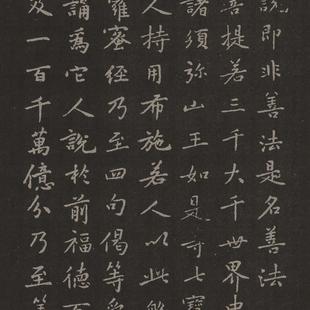 說即非善法是名善法
菩提若三千大千世界中
諸須弥山王如是等七寶
人持用布施若人以此般
羅蜜經乃至四句偈等受
誦為它人說於前福德百
及一百千萬億分乃至